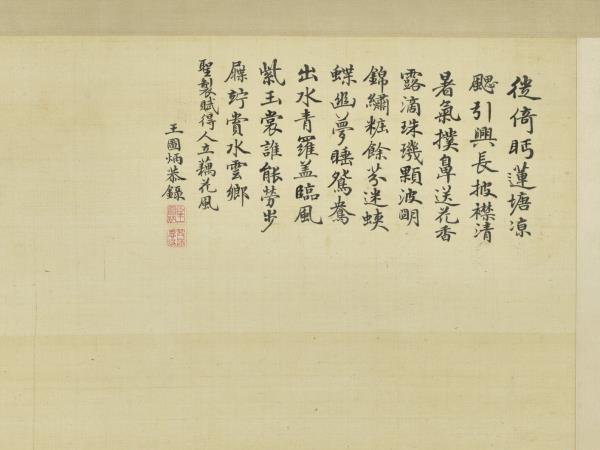 徙倚眄蓮塘凉
颸引興長披襟清
暑氣撲鼻送花香
露滴珠璣顆波眀
錦繡粧餘芬迷蛺
蝶幽夢睡鴛鴦
出水青羅盖臨風
紫玉裳誰能勞步
屧竚賞水雲鄉
聖製賦得人立藕花風
王圖炳恭錄